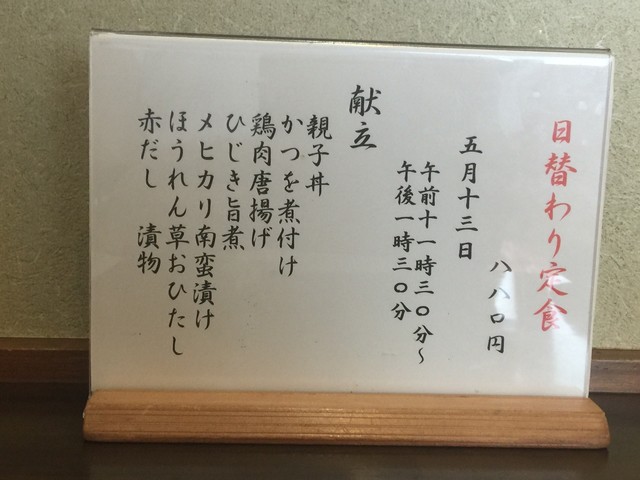 日替わり定食
八八〇円
五月十三日
午前十一時三〇分～
午後一時三〇分
献立
親子丼
かつを煮付け
鶏肉唐揚げ
ひじき旨煮
メヒカリ南蛮漬け
ほうれん草おひたし
赤だし　漬物